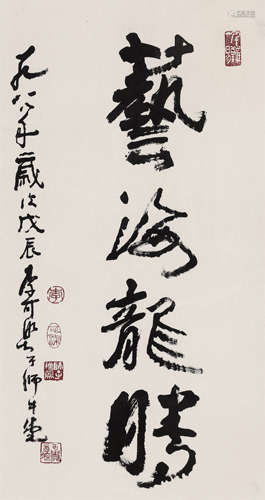 藝海龍騰
一九八八年歲次戊辰可染于師牛堂